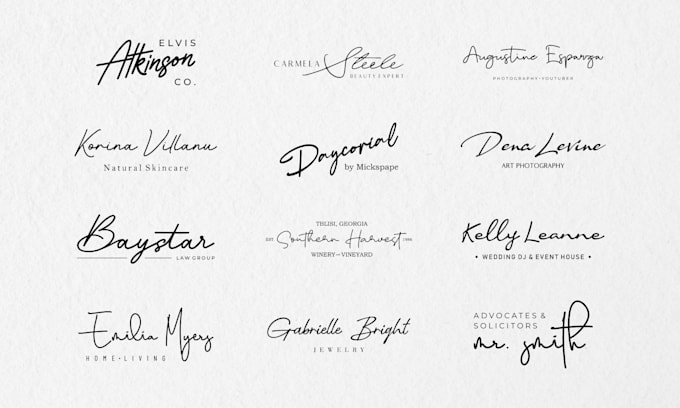 ELVIS
Atkinson
CO.
CARMELA Steele
BEAUTY EXPERT
Augustine Esparza
PHOTOGRAPHY+YOUTUBER
Korina Villanu
Natural Skincare
Daycorial
by Mickspape
Dena Levine
ART PHOTOGRAPHY
Baystar
LAW GROUP
TBLISI, GEORGIA
EST. Southern Harvest 1986
WINERY and VINEYARD
Kelly Leanne
• WEDDING DJ & EVENT HOUSE •
Emilia Myers
HOME+LIVING
Gabrielle Bright
JEWELRY
ADVOCATES &
SOLICITORS
mr. smith